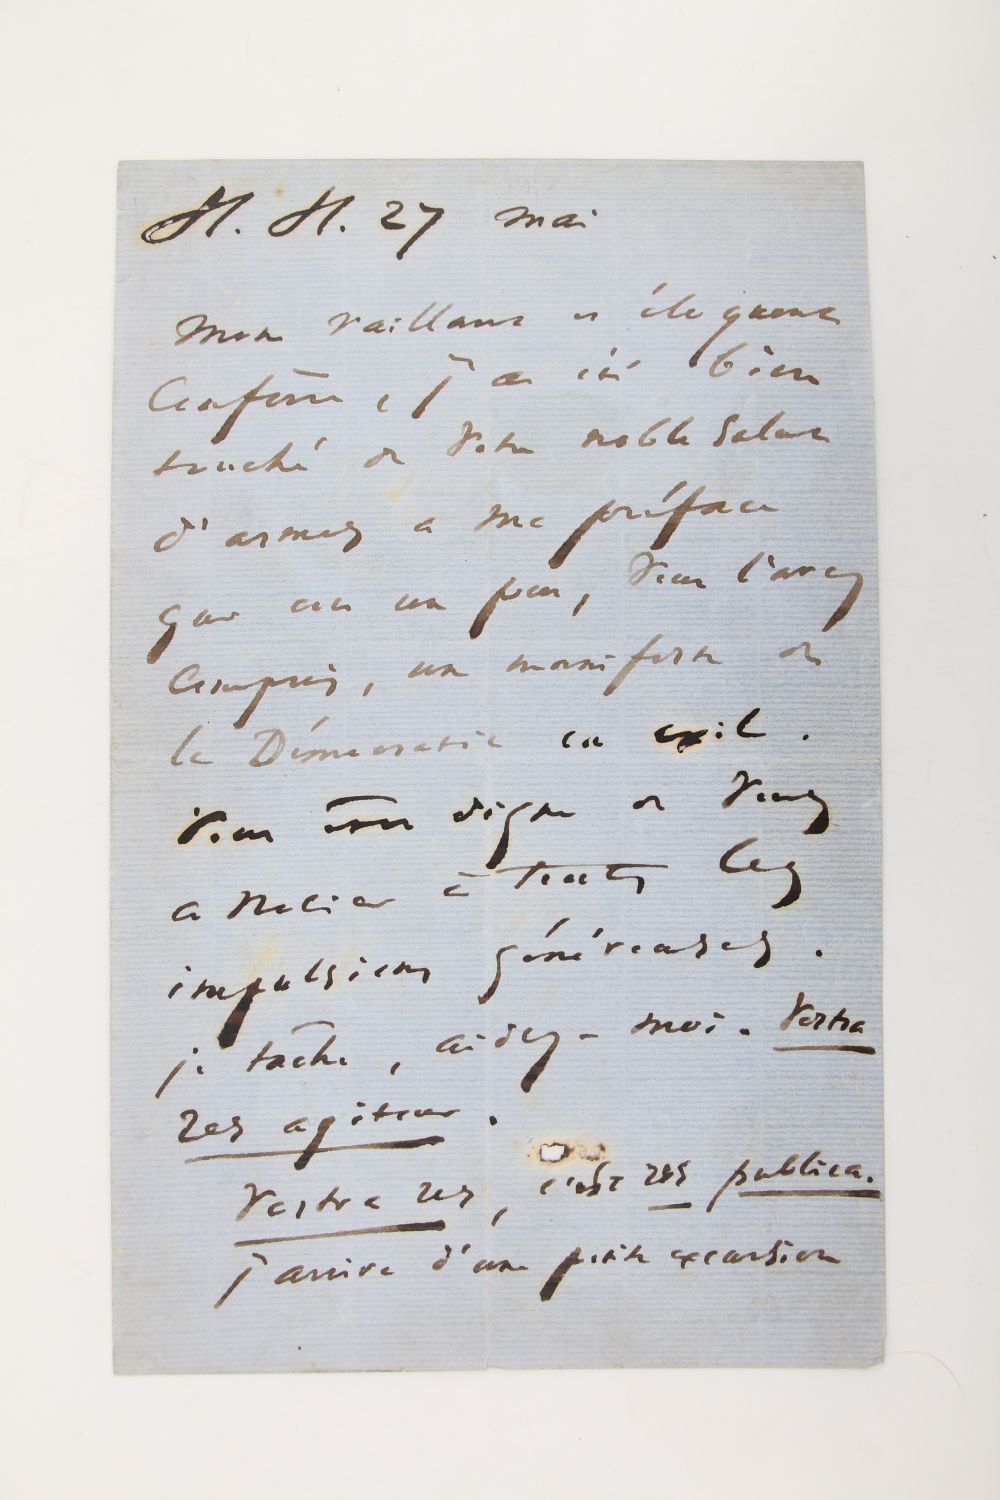 H. H. 27 mai
Mon vaillant et éloquent
Confrère, j'ai été bien
touché de votre noble salut
d'armes à ma préface
qui est un peu, vous l'avez
compris, un manifeste de
la Démocratie en exil.
Vous êtes digne de vous
associer à toutes les
impulsions généreuses.
je tâche, aidez-moi. Vestra
res agitur.
Vestra res, c'est res publica.
j'arrive d'une petite excursion